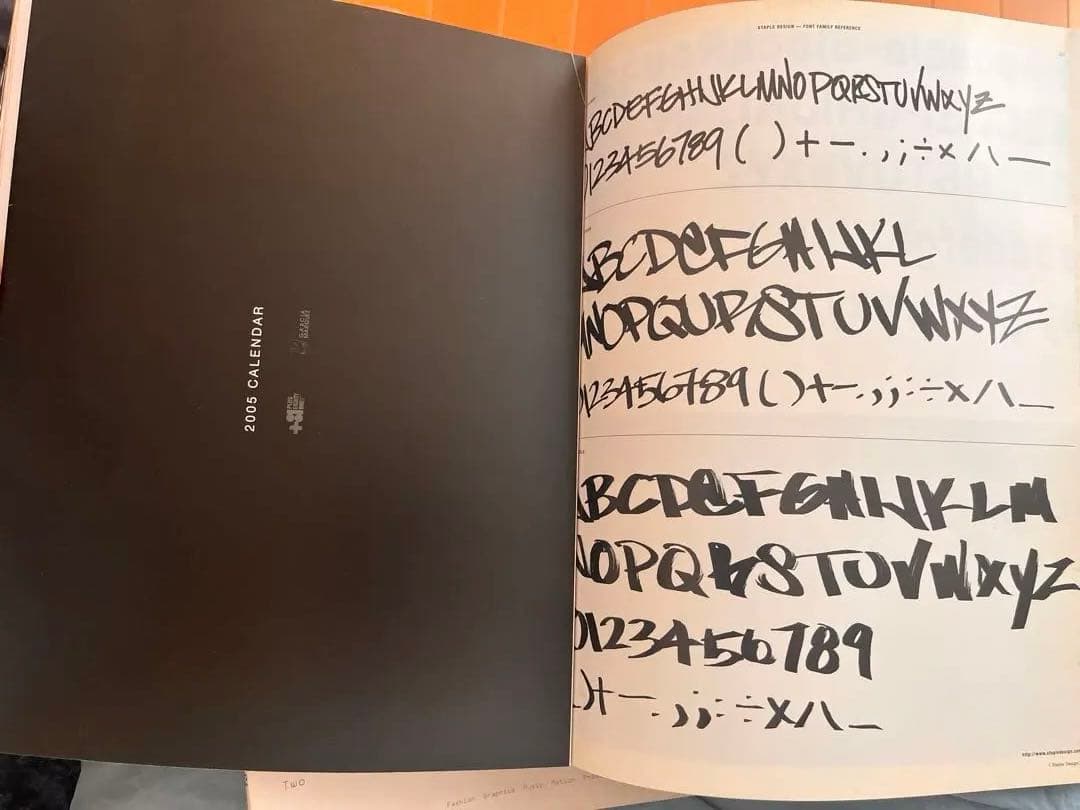 2005 CALENDAR
STAPLE DESIGN — FONT FAMILY REFERENCE
BCDEFGHIJKLMNOPQRSTUVWXYZ
0123456789 ( ) + − . , ; ÷ × / \ —
ABCDEFGHIJKL
NOPQURSTUVWXYZ
0123456789 ( ) + − . , ; : ÷ × / \ _
ABCDEFGHIJKLM
NOPQRSTUVWXYZ
0123456789
) + − . , ; : ÷ × / \ _
http://www.stapledesign.com
TWO
Fashion Graphics Music Motion